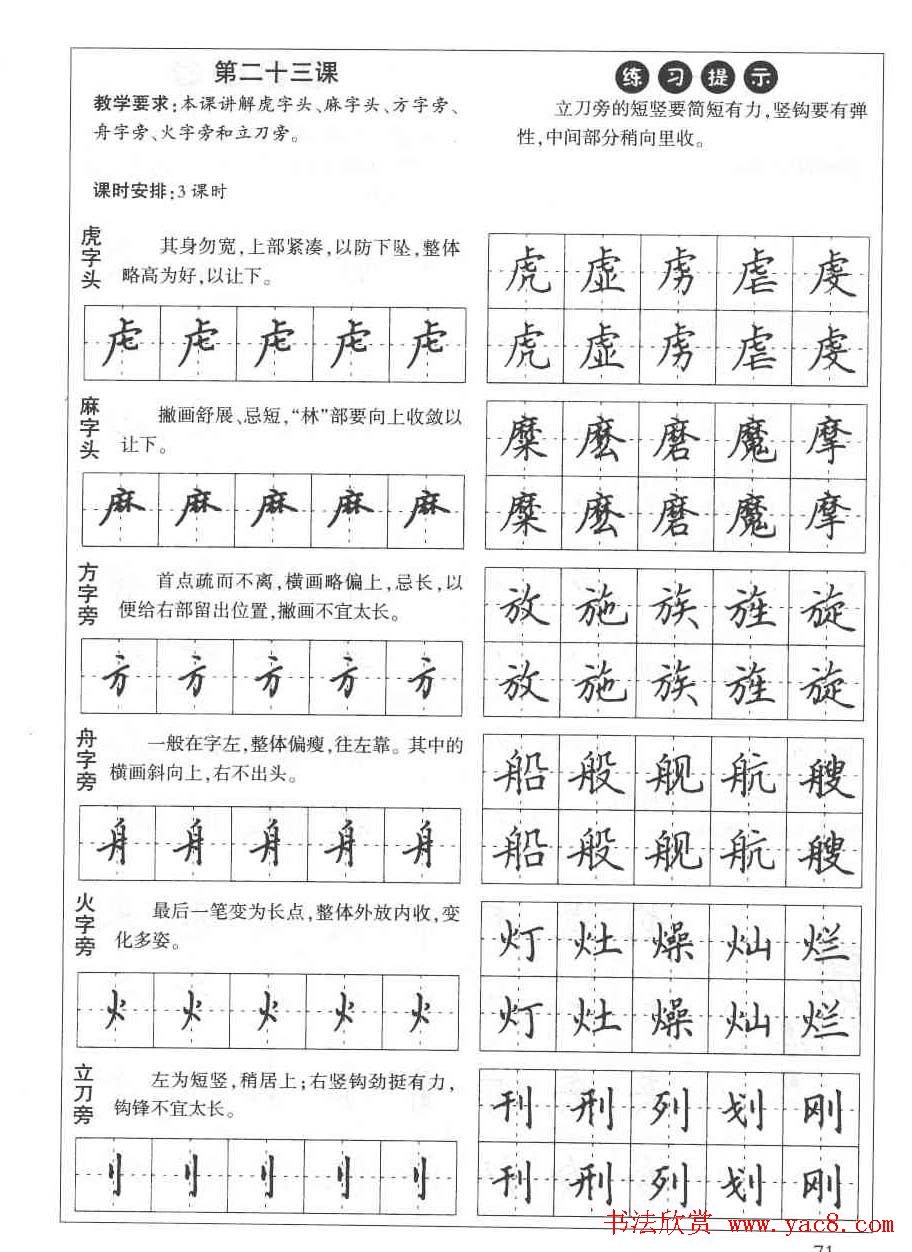 第二十三课
教学要求:本课讲解虎字头、麻字头、方字旁、
舟字旁、火字旁和立刀旁。
课时安排:3课时
练习提示
立刀旁的短竖要简短有力,竖钩要有弹
性,中间部分稍向里收。
虎字头
其身勿宽,上部紧凑,以防下坠,整体
略高为好,以让下。
虍虍虍虍虍
虎虚虏虐虔
虎虚虏虐虔
麻字头
撇画舒展、忌短,“林”部要向上收敛以
让下。
麻麻麻麻麻
糜麽磨魔摩
糜麽磨魔摩
方字旁
首点疏而不离,横画略偏上,忌长,以
便给右部留出位置,撇画不宜太长。
方方方方方
放施族旌旋
放施族旌旋
舟字旁
一般在字左,整体偏瘦,往左靠。其中的
横画斜向上,右不出头。
舟舟舟舟舟
船般舰航艘
船般舰航艘
火字旁
最后一笔变为长点,整体外放内收,变
化多姿。
火火火火火
灯灶燥灿烂
灯灶燥灿烂
立刀旁
左为短竖,稍居上;右竖钩劲挺有力,
钩锋不宜太长。
刂刂刂刂刂
刊刑列划刚
刊刑列划刚
书法欣赏 www.yac8.com
71